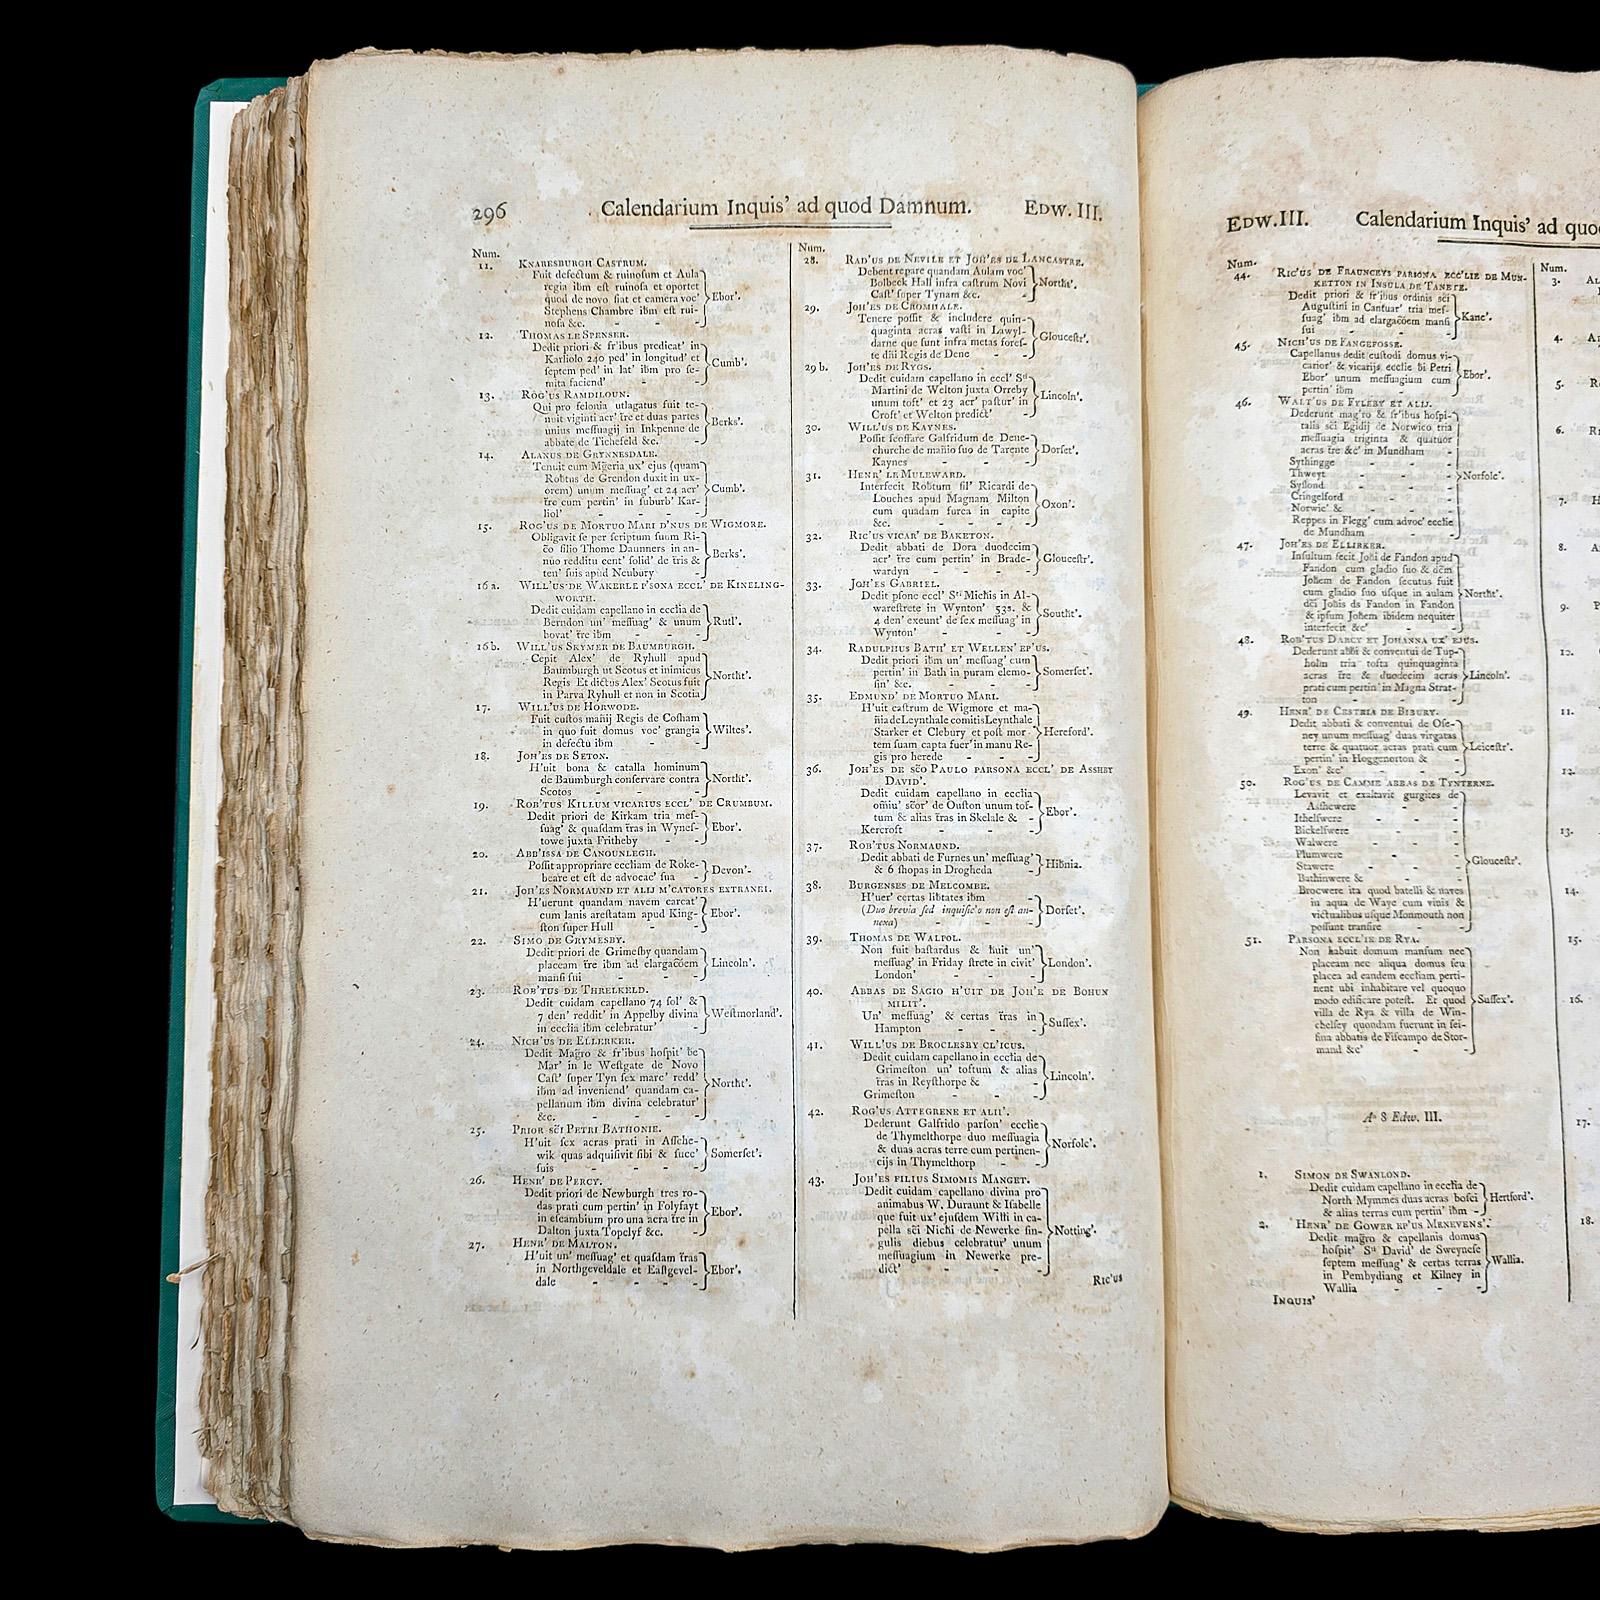 296 Calendarium Inquis' ad quod Damnum. Edw. III.
Num.
11. Knaresburgh Castrum.
Fuit defectum & ruinosum et Aula
regia ibm est ruinosa et oportet
quod de novo fiat et camera voc'
Stephens Chambre ibm est rui-
nosa &c. - - - Ebor'.
12. Thomas le Spenser.
Dedit priori & fr'ibus predicat' in
Karliolo 240 ped' in longitud' et
septem ped' in lat' ibm pro se-
mita faciend' - - Cumb'.
13. Rog'us Ramdiloun.
Qui pro felonia utlagatus fuit te-
nuit viginti acr' tre et duas partes
unius messuagij in Inkpenne de
abbate de Tichefeld &c. - Berks'.
14. Alanus de Grynnesdale.
Tenuit cum Mg̃eria ux' ejus (quam
Rob̃tus de Grendon duxit in ux-
orem) unum messuag' et 24 acr'
t̃re cum pertin' in suburb' Kar-
liol' - - - - Cumb'.
15. Rog'us de Mortuo Mari d'nus de Wigmore.
Obligavit se per scriptum suum Ri-
c̃o filio Thome Daunners in an-
nuo redditu cent' solid' de t̃ris &
ten' suis apud Neubury - Berks'.
16 a. Will'us de Wakerle p'sona eccl' de Kineling-
worth.
Dedit cuidam capellano in ecclia de
Berndon un' messuag' & unum
bovat' t̃re ibm - - - Rutl'.
16 b. Will'us Skymer de Baumburgh.
Cepit Alex' de Ryhull apud
Baumburgh ut Scotus et inimicus
Regis Et dictus Alex' Scotus fuit
in Parva Ryhull et non in Scotia North̃t'.
17. Will'us de Horwode.
Fuit custos manij Regis de Cosham
in quo fuit domus voc' grangia
in defectu ibm - - - Wiltes'.
18. Joh'es de Seton.
H'uit bona & catalla hominum
de Baumburgh conservare contra
Scotos - - - - North̃t'.
19. Rob'tus Killum vicarius eccl' de Crumbum.
Dedit priori de Kirkam tria mes-
suag' & quasdam t̃ras in Wynes-
towe juxta Fritheby - - Ebor'.
20. Abb'issa de Canounlegh.
Possit appropriare eccliam de Roke-
beare et est de advocac' sua - Devon'.
21. Joh'es Normaund et alij m'catores extranei.
H'uerunt quandam navem carcat'
cum lanis arestatam apud King-
ston super Hull - - - Ebor'.
22. Simo de Grymesby.
Dedit priori de Grimesby quandam
placeam t̃re ibm ad elargac̃oem
mansi sui - - - - Lincoln'.
23. Rob'tus de Threlkeld.
Dedit cuidam capellano 74 sol' &
7 den' reddit' in Appelby divina
in ecclia ibm celebratur' - Westmorland'.
24. Nich'us de Ellerker.
Dedit Mag̃ro & fr'ibus hospit' be
Mar' in le Westgate de Novo
Cast' super Tyn sex marc' redd'
ibm ad inveniend' quandam ca-
pellanum ibm divina celebratur'
&c. - - - - - North̃t'.
25. Prior sc̃i Petri Bathonie.
H'uit sex acras prati in Assche-
wik quas adquisivit sibi & succ'
suis - - - - Somerset'.
26. Henr' de Percy.
Dedit priori de Newburgh tres ro-
das prati cum pertin' in Folyfayt
in escambium pro una acra t̃re in
Dalton juxta Topclyf &c. - Ebor'.
27. Henr' de Malton.
H'uit un' messuag' et quasdam t̃ras
in Northgeveldale et Eastgevel-
dale - - - - Ebor'.
Num.
28. Rad'us de Nevile et Joh'es de Lancastre.
Debent repare quandam Aulam voc'
Bolbeck Hall infra castrum Novi
Cast' super Tynam &c. - North̃t'.
29. Joh'es de Cromhale.
Tenere possit & includere quin-
quaginta acras vasti in Lawyl-
darne que sunt infra metas fores-
te dñi Regis de Dene - - Gloucestr'.
29 b. Joh'es de Rygs.
Dedit cuidam capellano in eccl' Sti
Martini de Welton juxta Orreby
unum toft' et 23 acr' pastur' in
Croft' et Welton predict' - Lincoln'.
30. Will'us de Kaynes.
Possit feoffare Galfridum de Dene-
churche de mañio suo de Tarente
Kaynes - - - - Dorset'.
31. Henr' le Muleward.
Interfecit Rob̃tum fil' Ricardi de
Louches apud Magnam Milton
cum quadam furca in capite
&c. - - - - Oxon'.
32. Ric'us vicar' de Baketon.
Dedit abbati de Dora duodecim
acr' t̃re cum pertin' in Brade-
wardyn - - - - Gloucestr'.
33. Joh'es Gabriel.
Dedit psone eccl' Sti Michis in Al-
warestrete in Wynton' 53s. &
4 den' exeunt' de sex messuag' in
Wynton' - - - - South̃t'.
34. Radulphus Bath' et Wellen' ep'us.
Dedit priori ibm un' messuag' cum
pertin' in Bath in puram elemo-
sin' &c. - - - - Somerset'.
35. Edmund' de Mortuo Mari.
H'uit castrum de Wigmore et ma-
ñia de Leynthale comitis Leynthale
Starker et Clebury et post mor
tem suam capta fuer' in manu Re-
gis pro herede - - - Hereford'.
36. Joh'es de sc̃o Paulo parsona eccl' de Assheby
David'.
Dedit cuidam capellano in ecclia
om̃iu' sc̃or' de Ouston unum tof-
tum & alias t̃ras in Skelale & -
Kercroft - - - - Ebor'.
37. Rob'tus Normaund.
Dedit abbati de Furnes un' messuag'
& 6 shopas in Drogheda - Hib̃nia.
38. Burgenses de Melcombe.
H'uer' certas lib̃tates ibm -
(Duo brevia sed inquisic'o non est an-
nexa) - - - - Dorset'.
39. Thomas de Walpol.
Non fuit bastardus & h̃uit un'
messuag' in Friday strete in civit'
London' - - - - London'.
40. Abbas de Sagio h'uit de Joh'e de Bohun
milit'.
Un' messuag' & certas t̃ras in
Hampton - - - - Sussex'.
41. Will'us de Broclesby cl'icus.
Dedit cuidam capellano in ecclia de
Grimeston un' toftum & alias
t̃ras in Reysthorpe & -
Grimeston - - - - Lincoln'.
42. Rog'us Attegrene et alii'.
Dederunt Galfrido parson' ecclie
de Thymelthorpe duo messuagia
& duas acras terre cum pertinen-
cijs in Thymelthorp - - Norfolc'.
43. Joh'es filius Simomis Manget.
Dedit cuidam capellano divina pro
animabus W. Duraunt & Isabelle
que fuit ux' ejusdem Willi in ca-
pella sc̃i Nichi de Newerke sin-
gulis diebus celebratur' unum
messuagium in Newerke pre-
dict' - - - - Notting'.
Ric'us
Edw. III. Calendarium Inquis' ad quo
Num.
44. Ric'us de Fraunceys parsona ecc'lie de Mun-
ketton in Insula de Tanete.
Dedit priori & fr'ibus ordinis sc̃i
Augustini in Cantuar' tria mes-
suag' ibm ad elargac̃oem mansi
sui - - - - Kanc'.
45. Nich'us de Fangefosse.
Capellanus dedit custodi domus vi-
carior' & vicarijs ecclie bi Petri
Ebor' unum messuagium cum
pertin' ibm - - - Ebor'.
46. Walt'us de Fyleby et alij.
Dederunt mag'ro & fr'ibus hospi-
talis sc̃i Egidij de Norwico tria
messuagia triginta & quatuor
acras t̃re &c' in Mundham -
Sythingge - - -
Thweyt - - - -
Syslond - - - -
Cringelford - - -
Norwic' & - - -
Reppes in Flegg' cum advoc' ecclie
de Mundham - - - Norfolc'.
47. Joh'es de Ellirker.
Insultum fecit Johi de Fandon apud
Fandon cum gladio suo & dc̃m
Joh̃em de Fandon secutus fuit
cum gladio suo usque in aulam
dc̃i Johis ds Fandon in Fandon
& ipsum Joh̃em ibidem nequiter
interfecit &c' - - - North̃t'.
48. Rob'tus Darcy et Johanna ux' ejus.
Dederunt abb̃i & conventui de Tup-
holm tria tofta quinquaginta
acras t̃re & duodecim acras
prati cum pertin' in Magna Strat-
ton - - - - Lincoln'.
49. Henr' de Cestria de Bibury.
Dedit abbati & conventui de Ose-
ney unum messuag' duas virgatas
terre & quatuor acras prati cum
pertin' in Hoggenorton &
Exon' &c' - - - Leicestr'.
50. Rog'us de Camme abbas de Tynterne.
Levavit et exaltavit gurgites de
Asshewere - - -
Ithelswere - - -
Bickelswere - - -
Walwere - - -
Plumwere - - -
Stawere - - -
Bathinwere & - - -
Brocwere ita quod batelli & naves
in aqua de Waye cum vinis &
victualibus usque Monmouth non
possunt transire - - - Gloucestr'.
51. Parsona eccl'ie de Rya.
Non habuit domum mansum nec
placeam nec aliqua domus seu
placea ad eandem eccliam perti-
nent ubi inhabitare vel quoquo
modo edificare potest. Et quod
villa de Rya & villa de Win-
chelsey quondam fuerunt in sei-
sina abbatis de Fiscampo de Stor-
mand &c' - - - Sussex'.
Ao 8 Edw. III.
1. Simon de Swanlond.
Dedit cuidam capellano in ecclia de
North Mymmes duas acras bosci
& alias terras cum pertin' ibm - Hertford'.
2. Henr' de Gower ep'us Menevens'.
Dedit mag̃ro & capellanis domus
hospit' Sti David' de Sweynese
septem messuag' & certas terras
in Pembydiang et Kilney in
Wallia - - - - Wallia.
Inquis'
Num.
3. Al
4.
5. R
6. R
7. H
8. A
9. P
10.
11.
12.
13.
14.
15.
16.
17.
18.